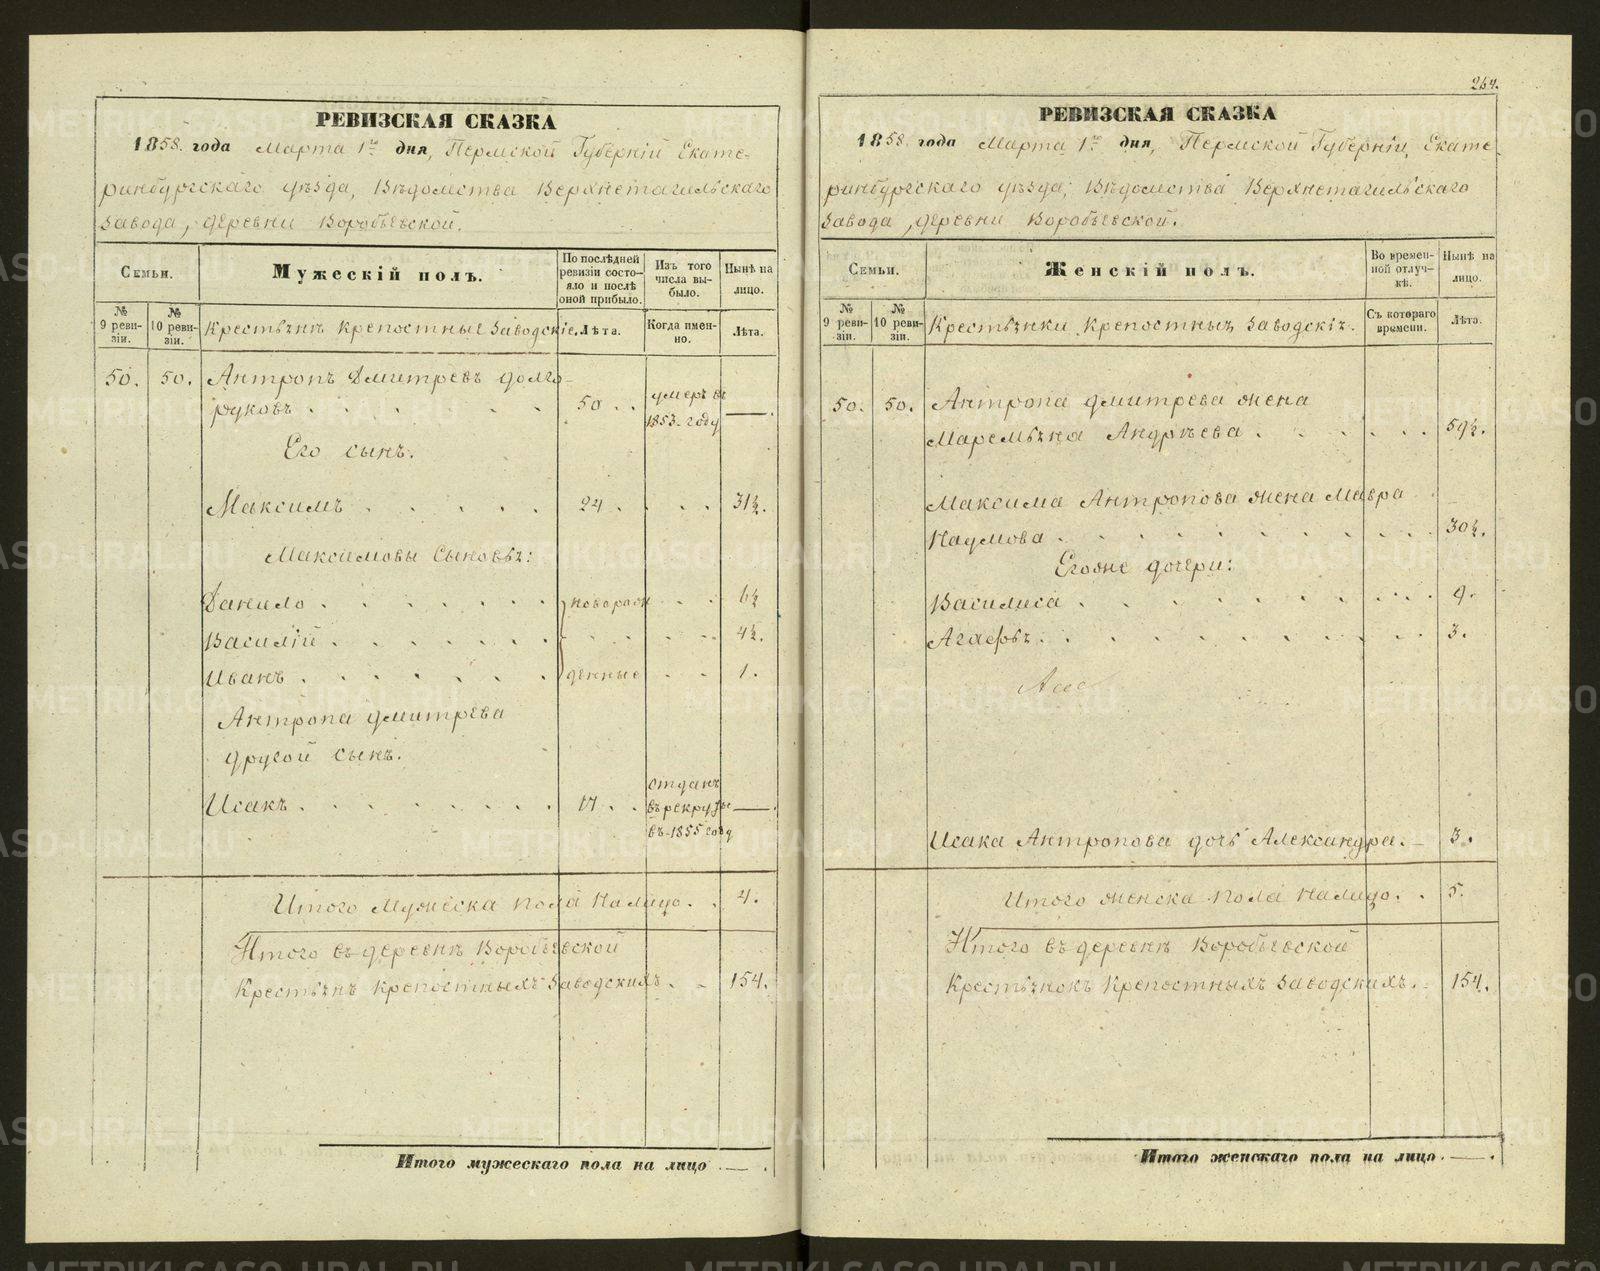 РЕВИЗСКАЯ СКАЗКА
1858. года Марта 1го дня, Пермской Губерніи Екате-
ринбургскаго уѣзда, Вѣдомства Верхнетагильскаго
Завода, деревни Воробьевской.
Семьи.
Мужескій полъ.
По послѣдней ревизіи состояло и послѣ оной прибыло.
Изъ того числа выбыло.
Нынѣ на лицо.
№ 9 ревизіи.
№ 10 ревизіи.
Крестьянѣ крепостные Заводскіе.
Лѣта.
Когда именно.
Лѣта.
50. 50. Антропъ Дмитревъ Долго-
руковъ . . . . . 50 . . умеръ въ 1853. году —
Его сынъ.
Максимъ . . . . . 24 . . . . 31½.
Максимовы Сыновья:
Данило . . . . . . новорож . . 6½
Василій . . . . . . . . . 4½.
Иванъ . . . . . . денные . . 1.
Антропа Дмитрева
другой сынъ.
Исакъ . . . . . . . 17 . . отданъ въ рекруты въ 1855 году —
Итого Мужеска пола налицо. . 4.
Итого въ деревнѣ Воробьевской
Крестьянъ крепостныхъ Заводскихъ . . 154.
Итого мужескаго пола на лицо . — .
264.
РЕВИЗСКАЯ СКАЗКА
1858. года Марта 1го дня, Пермской Губерніи, Екате-
ринбургскаго уѣзда, Вѣдомства Верхнетагильскаго
Завода, деревни Воробьевской.
Семьи.
Женскій полъ.
Во временной отлучкѣ.
Нынѣ на лицо.
№ 9 ревизіи.
№ 10 ревизіи.
Крестьянки крепостныя Заводскія.
Съ котораго времени.
Лѣта.
50. 50. Антропа Дмитрева жена
Маремьяна Андрѣева . . . . . . 59½.
Максима Антропова жена Мавра
Наумова . . . . . . . . . . 30½.
Егоже дочери:
Василиса . . . . . . . . . . . 9.
Агафья . . . . . . . . . . . 3.
Исака Антропова дочь Александра. — 3.
Итого женска пола налицо. . 5.
Итого въ деревнѣ Воробьевской
Крестьянокъ крепостныхъ Заводскихъ. . 154.
Итого женскаго пола на лицо . — .
METRIKI.GASO-URAL.RU